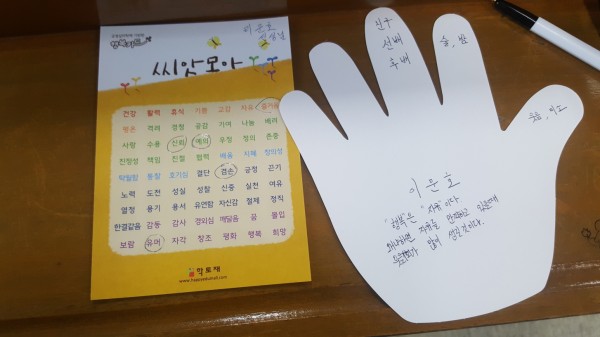 행복카드
이윤호
선생님
씨앗모아
건강 활력 휴식 기쁨 교감 자유 즐거움
평온 격려 경청 공감 기여 나눔 배려
사랑 수용 신뢰 예의 우정 정의 존중
진정성 책임 친절 협력 배움 지혜 창의성
탁월함 통찰 호기심 결단 겸손 긍정 끈기
노력 도전 성실 성찰 신중 실천 여유
열정 용기 용서 유연함 자신감 절제 정직
한결같음 감동 감사 경외심 깨달음 꿈 몰입
보람 유머 자각 창조 평화 행복 희망
학토재
www.happyedumall.com
친구
선배
후배
술, 밤
웃음, 미소
이윤호
"행복은 " 자유" 이다
왜냐하면 자유를 만끽하고 있을때
많이 생길것이다.